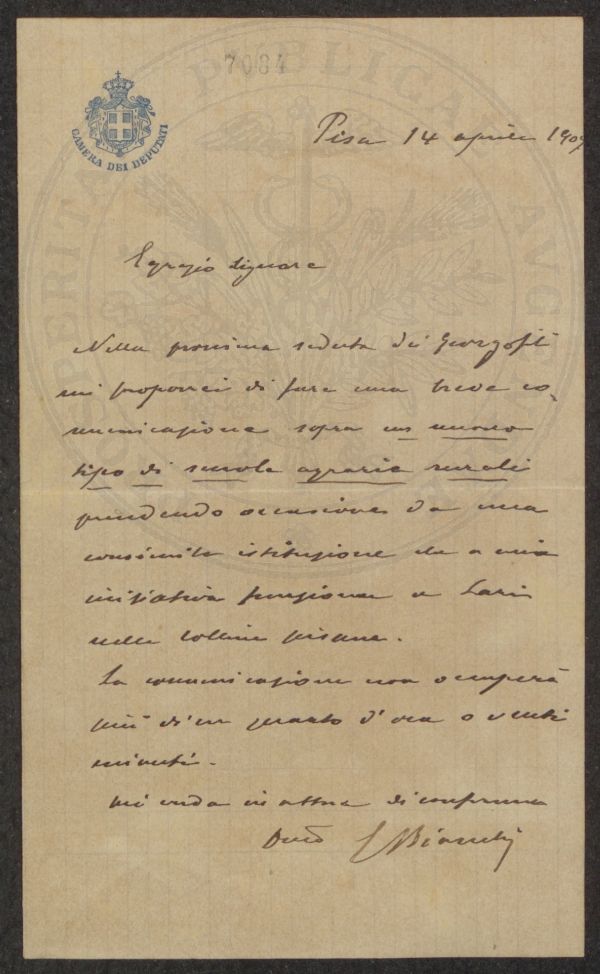 7084
CAMERA DEI DEPUTATI
Pisa 14 aprile 1907
Egregio Signore
Nella prossima seduta dei Georgofili
mi proporrei di fare una breve co-
municazione sopra un nuovo
tipo di scuola agraria rurale
prendendo occasione da una
consimile istituzione che a mia
iniziativa funziona a Lari
nelle colline pisane.
La comunicazione non occuperà
più di un quarto d'ora o venti
minuti.
Mi creda in attesa di conferma
Devo Bianchi
PROSPERITATI PUBLICAE AUGENDAE